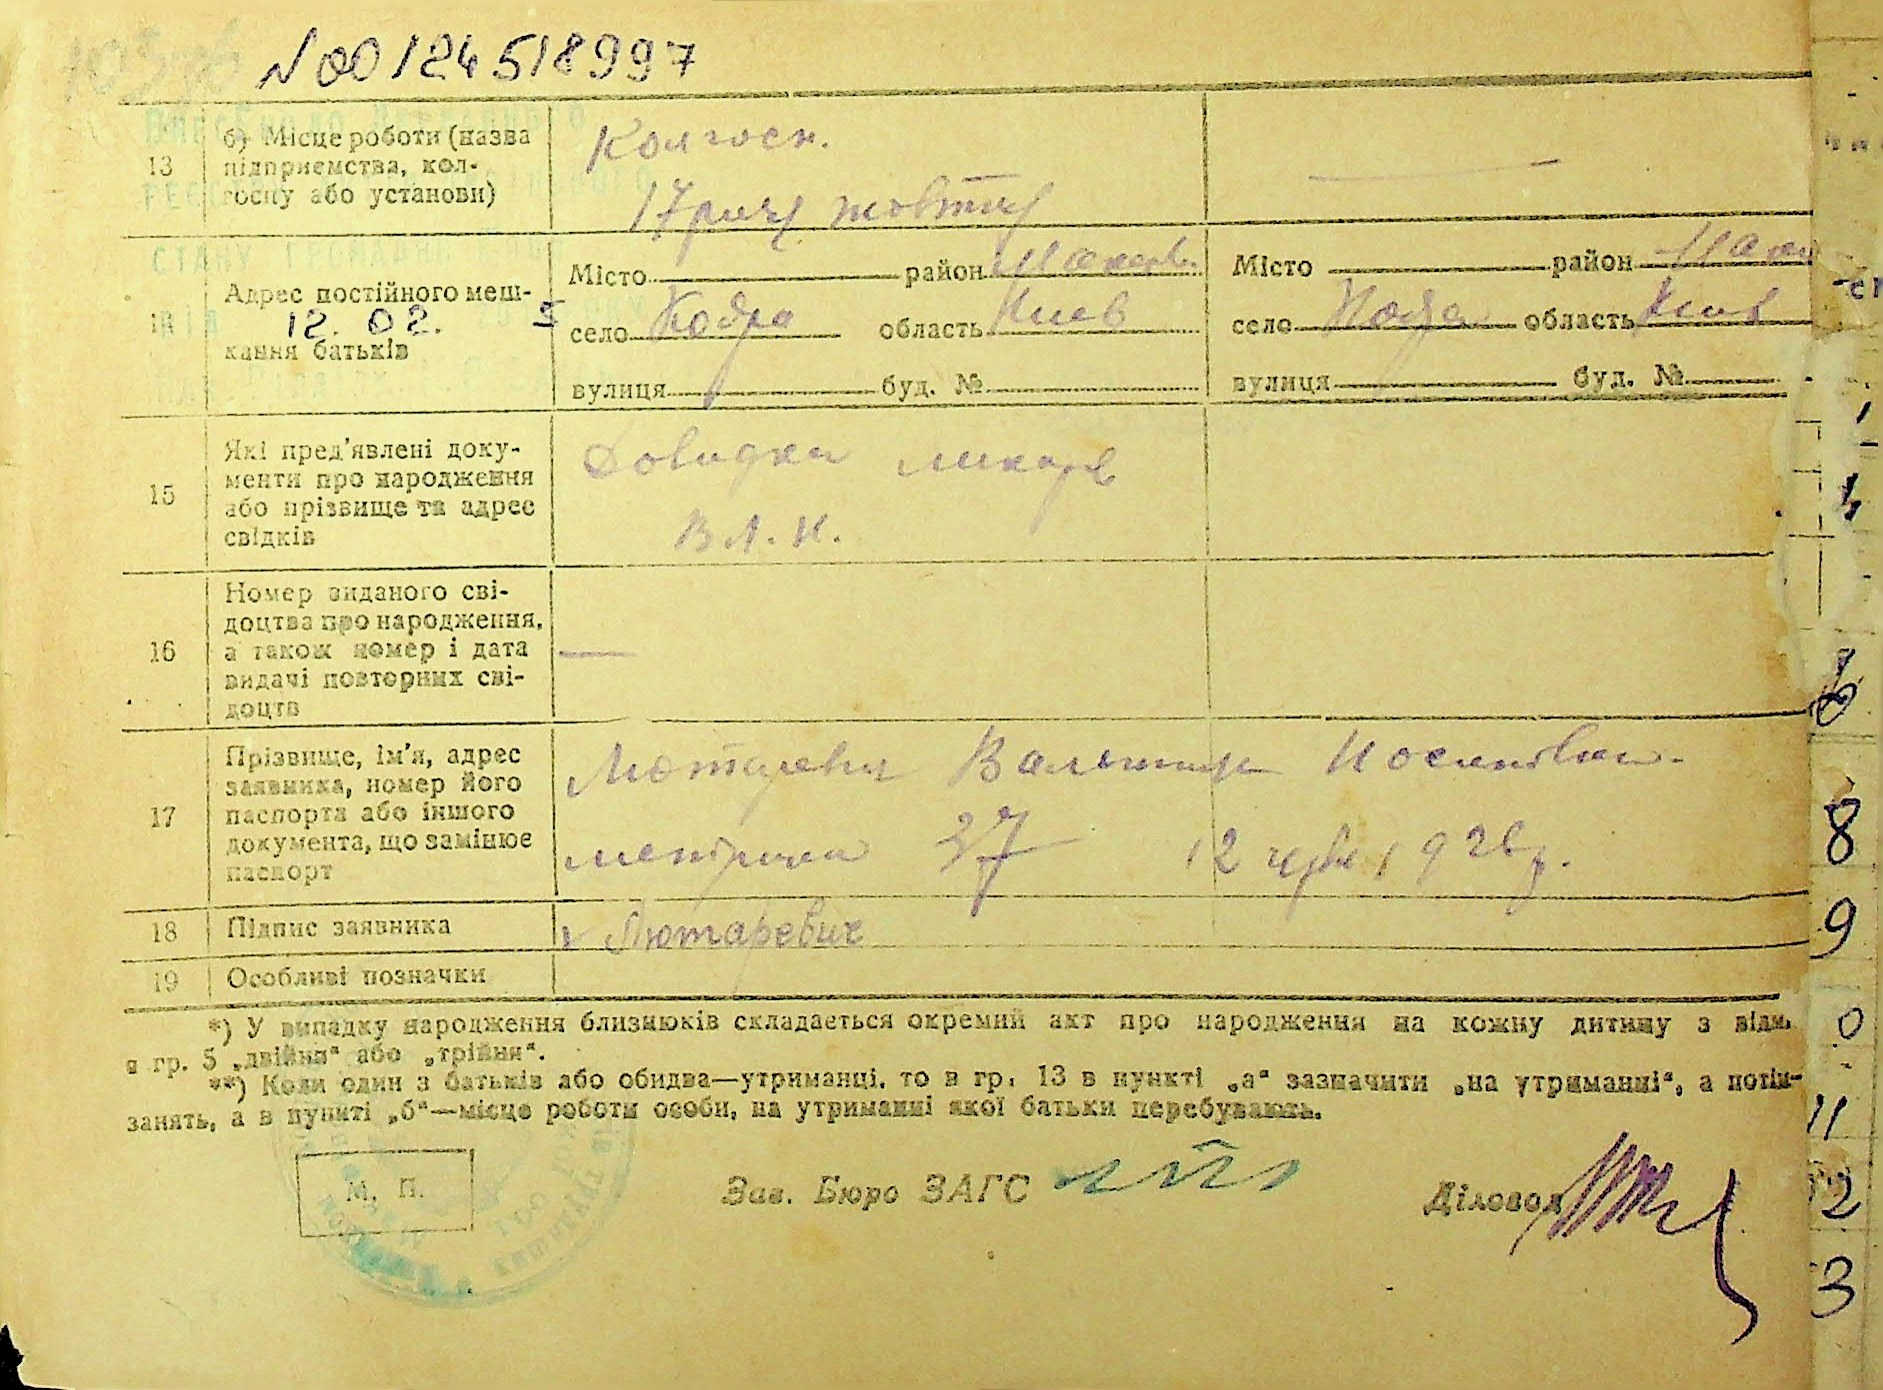 N 00124518997
13
б) Місце роботи (назва
підприємства, кол-
госпу або установи)
Колгосп.
17 річч жовтня
14
Адрес постійного меш-
12. 02. 5
кання батьків
Місто район Макарів.
село Кодра область Киев
вулиця буд. №
Місто район Мака
село Кодра область Киев
вулиця буд. №
15
Які пред'явлені доку-
менти про народження
або прізвище та адрес
свідків
Довидка ликаря
16
Номер виданого сві-
доцтва про народження,
а також номер і дата
видачі повторних сві-
доцтв
17
Прізвище, ім'я, адрес
заявника, номер його
паспорта або іншого
документа, що замінює
паспорт
Лютаревич
метрика 37 12 черв 1928 р.
18
Підпис заявника
Лютаревич
19
Особливі позначки
*) У випадку народження близнюків складається окремий акт про народження на кожну дитину з відм.
в гр. 5 „двійня" або „трійня".
**) Коли один з батьків або обидва—утриманці, то в гр. 13 в пункті „а" зазначити „на утриманні", а потім-
занять, а в пункті „б"—місце роботи особи, на утриманні якої батьки перебувають.
М. П.
Зав. Бюро ЗАГС
Діловод
8
9
0
11
2
3